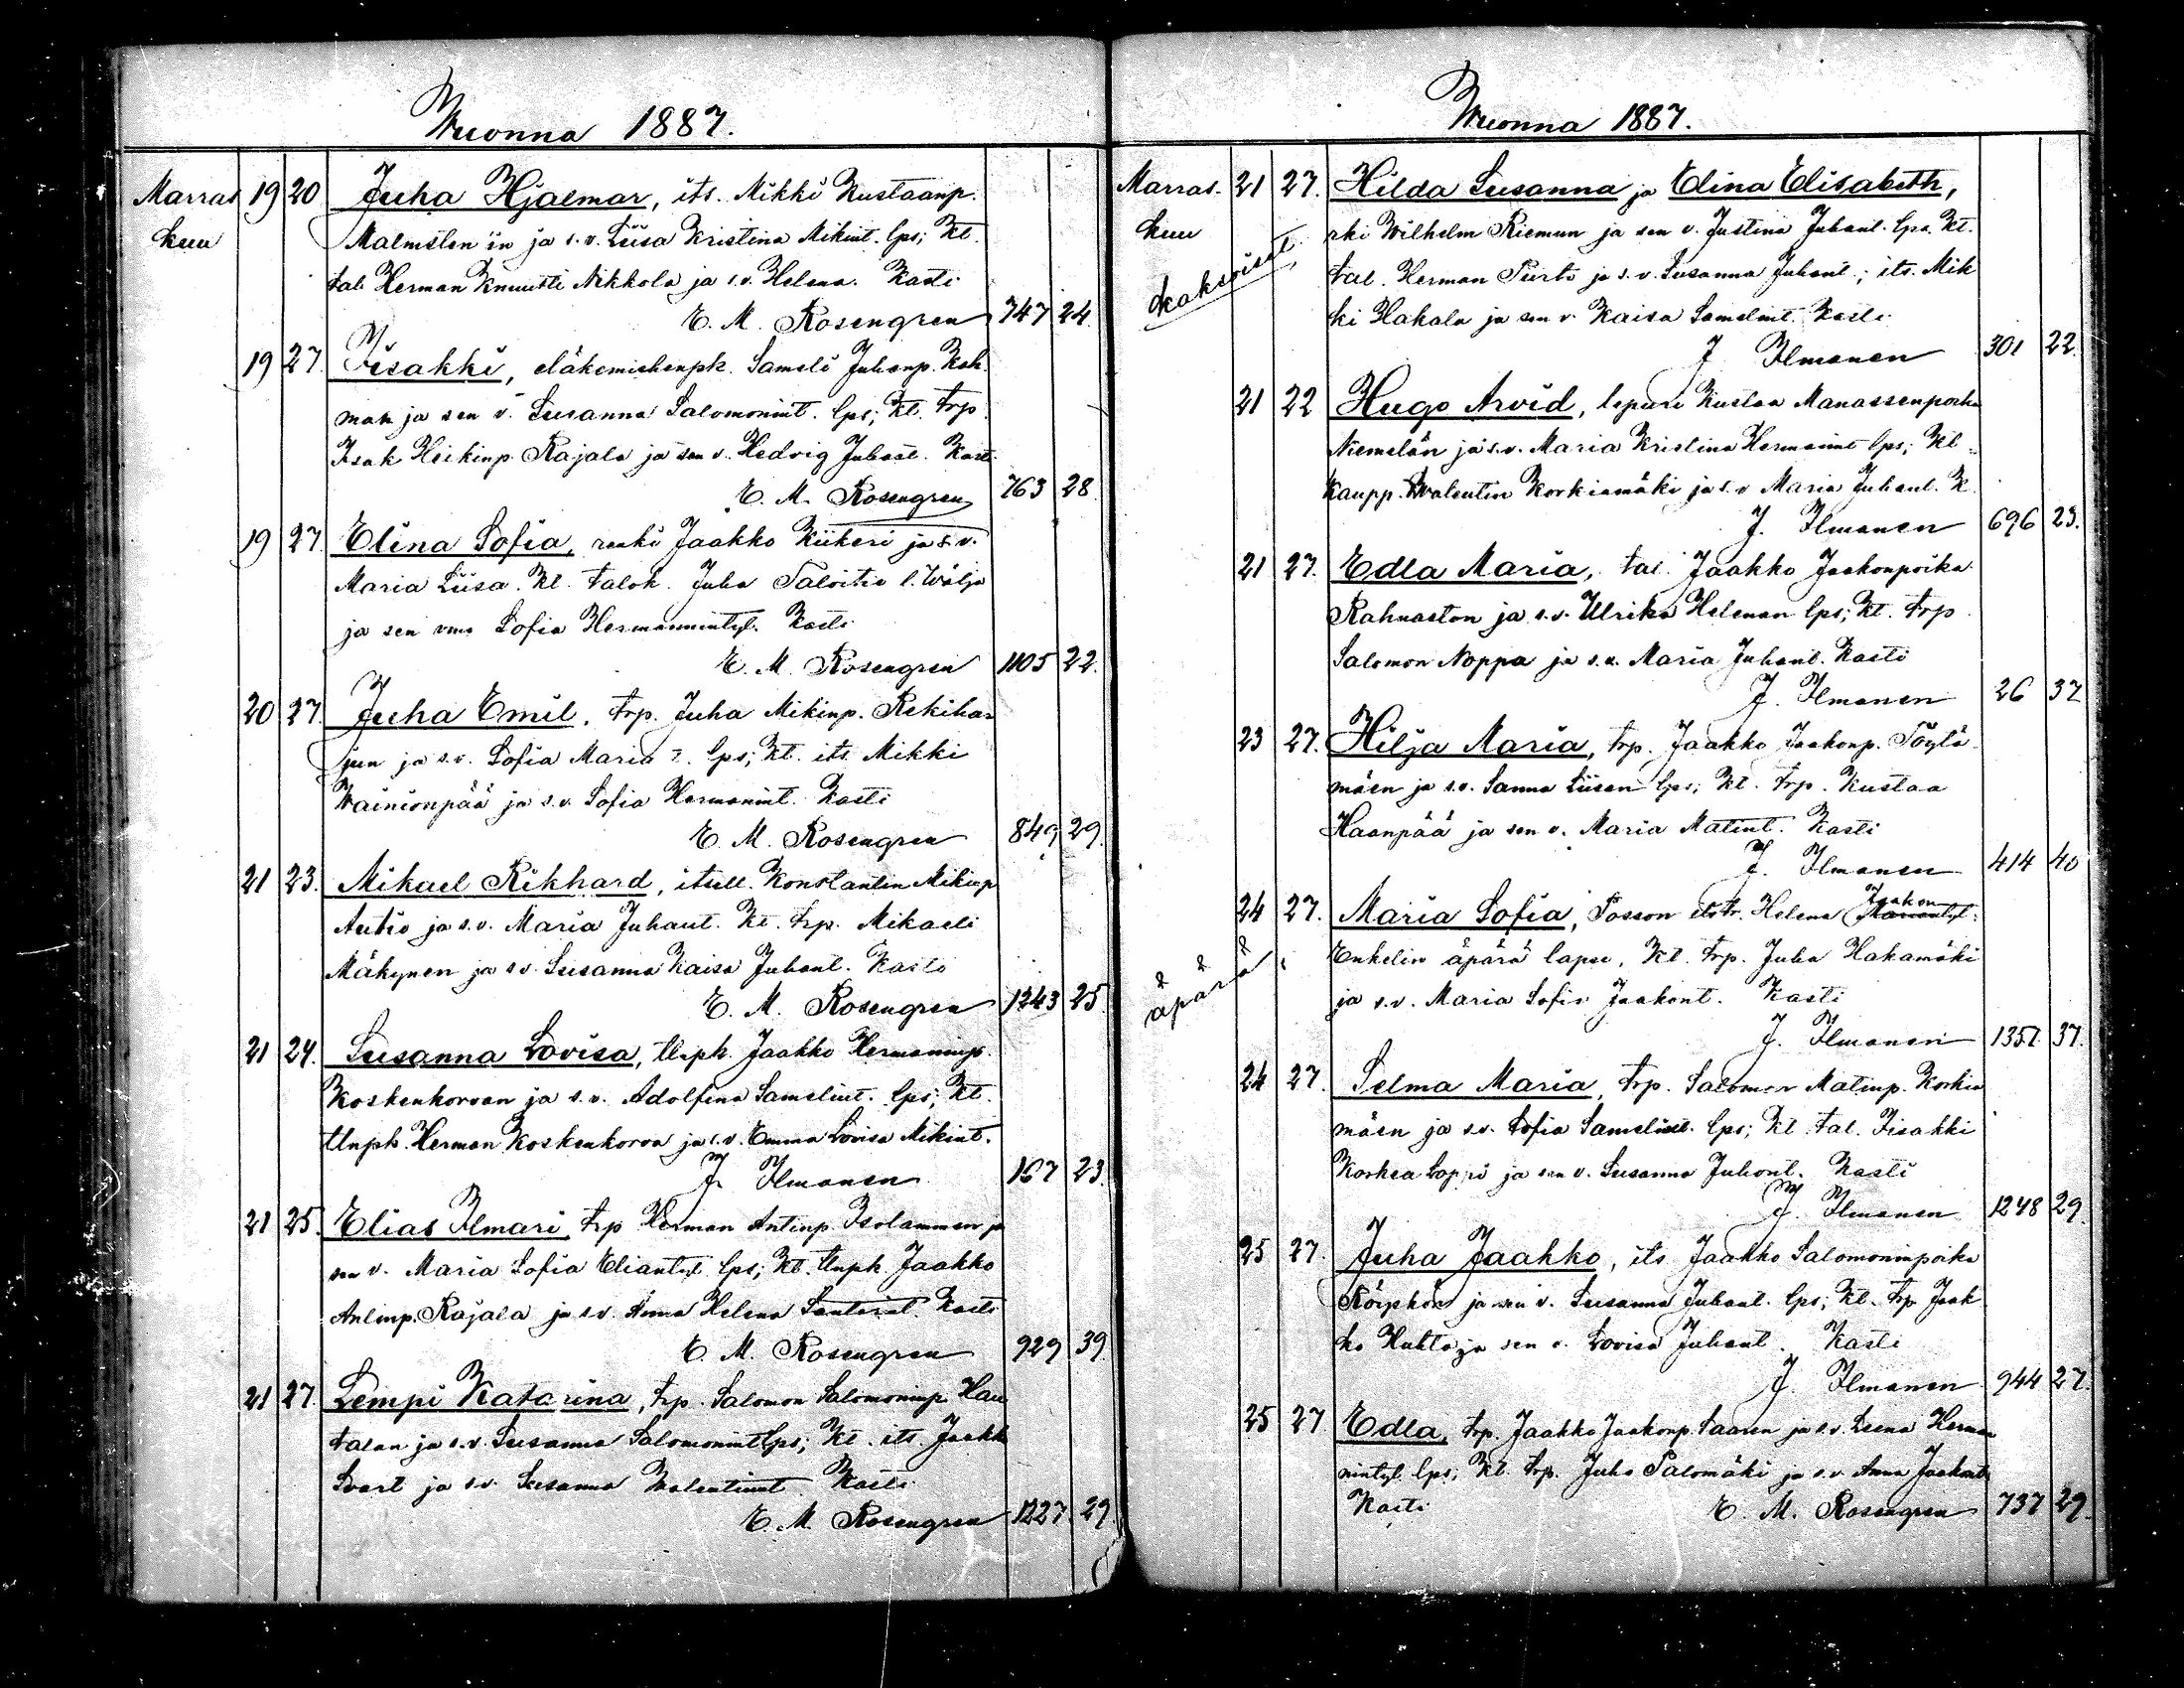 Wuonna 1887.
Marras 19 20 Juha Hjalmar, its. Mikki Kustaanp.
kuu Malmsten'in ja s.v. Liisa Kristina Mikint. lps; Kt.
tal. Herman Knuutti Nikkola ja s.v. Helena. Kasti
E. M. Rosengren 747 24.
19 27. Iisakki, eläkemiehenpk. Sameli Juhanp. Koh
man ja sen v. Susanna Salomonint. lps; Kt. trp.
Isak Heikinp. Rajala ja sen v. Hedvig Juhant. Kasti
E. M. Rosengren 763 28.
19 27. Elina Sofia, renki Jaakko Kiikeri ja s.v.
Maria Liisa. Kt. talok. Juha
ja sen vmo Sofia Hermannintyt. Kasti
E. M. Rosengren 1105 22.
20 27. Juha Emil, trp. Juha Mikinp. Rekihar
jun ja s.v. Sofia Maria lps; Kt. its. Mikki
Wainionpää ja s.v. Sofia Hermanint. Kasti
E. M. Rosengren 849 29.
21 23. Mikael Rikhard, itsell. Konstantin Mikinp
Autio ja s.v. Maria Juhant. Kt. trp. Mikaeli
Mäkynen ja s.v. Susanna Kaisa Juhant. Kasti
E. M. Rosengren 1243 25.
21 24. Susanna Lovisa, Unph. Jaakko Hermaninp.
Koskenkorvan ja s.v. Adolfina Samelint. lps; Kt.
Unph. Herman Koskenkorva ja s.v. Emma Lovisa Mikint.
J. Ilmanen 167 23.
21 25. Elias Ilmari, trp Herman Antinp. Isolammen ja
sen v. Maria Sofia Eliantyt lps; Kt. Unph. Jaakko
Antinp. Rajala ja s.v. Anna Helena Kasti
E. M. Rosengren 929 39.
21 27. Lempi Katarina, trp. Salomon Salomoninp. Hau
talan ja s.v. Susanna Salomonint lps; Kt. its. Jaakk
Svart ja s.v. Susanna Walentinint. Kasti
E. M. Rosengren 1227 29.
Wuonna 1887.
Marras- 21 27. Hilda Susanna ja Elina Elisabeth,
kuu rki Wilhelm Riemun ja sen v. Justina Juhant. lps. Kt.
kaksoiset tal. Herman ja s.v. Susanna Juhant.; its. Mik
ki Hakala ja sen v. Kaisa Samelint. Kasti
J Ilmanen 301 22.
21 22 Hugo Arvid, lepuri Kustaa Manassenpoika
Niemelän ja s.v. Maria Kristina Hermanint lps; Kt.
Kaupp. Walentin Korkiamäki ja s.v Maria Juhant. K.
J. Ilmanen 696 23.
21 27. Edla Maria, tal. Jaakko Jaakonpoika
Rahnaston ja s.v. Ulrika Helenan lps; Kt. trp
Salomon Noppa ja s.v. Maria Juhant. Kasti
J. Ilmanen 26 37
23 27. Hilja Maria, trp. Jaakko Jaakonp. Töylä-
mäen ja s.v. Sanna Liisan lps; Kt. trp. Kustaa
Haanpää ja sen v. Maria Matint. Kasti
J. Ilmanen 414 40
24 27. Maria Sofia, Helena Jaakon
Enkelin äpärä lapsi, Kt. trp. Juha Hakamäki
äpärä ja s.v. Maria Sofia Jaakont. Kasti
J. Ilmanen 1351. 37.
24 27. Selma Maria, trp. Salomon Matinp. Korkia
mäen ja s.v. Sofia Samelint. lps; Kt tal. Iisakki
Korkea Loppi ja sen v. Susanna Juhont. Kasti
J. Ilmanen 1248 29.
25 27. Juha Jaakko, its Jaakko Salomoninpoika
ja sen v. Susanna Juhant. lps; Kt. trp Jaak
ko Huhta ja sen v. Lovisa Juhant. Kasti
J. Ilmanen 944 27.
25 27 Edla, trp. Jaakko Jaakonp. Saaren ja s.v. Leena Herman
nintyt. lps; Kt. trp. Juho Palomäki ja s.v. Anna Jaakont.
Kasti E. M. Rosengren 737 29.